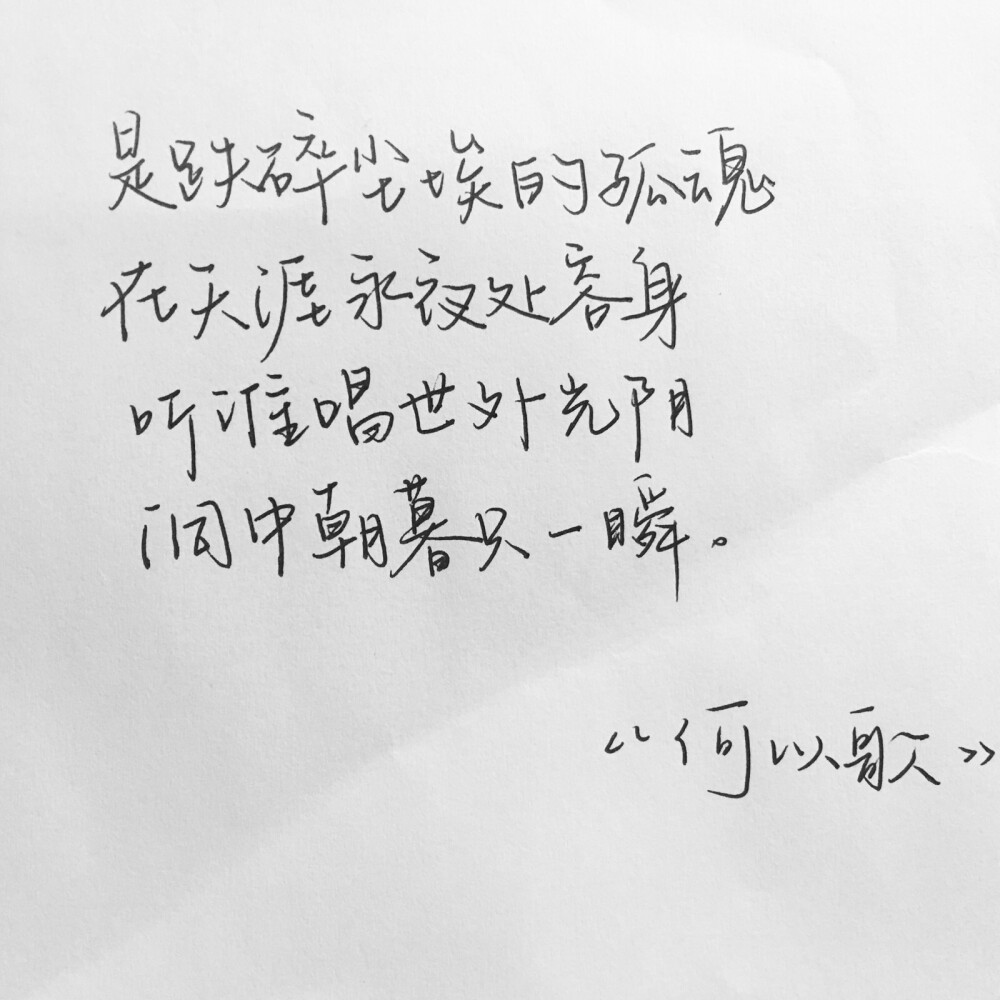 是跌碎尘埃的孤魂
在天涯永夜处容身
听谁唱世外光阴
洞中朝暮只一瞬。
《何以歌》